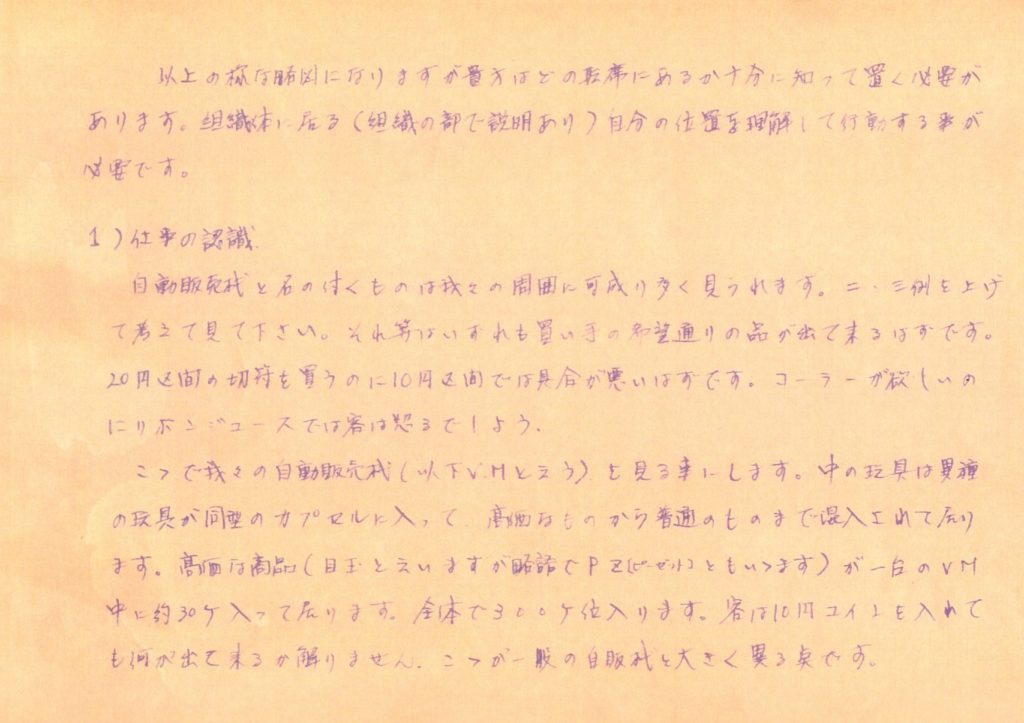 以上の様な略図になりますが貴方はどの転席にあるか十分に知って置く必要が
あります。組織体に居る(組織の部で説明あり)自分の位置を理解して行動する事が
必要です。
1)仕事の認識
自動販売機と名の付くものは我々の周囲に可成り多く見うれます。二・三例を上げ
て考えて見て下さい。それ等はいずれも買い手の希望通りの品が出て来るはずです。
20円区間の切符を買うのに10円区間では具合が悪いはずです。コーラーが欲しいの
にリボンジュースでは客は怒るでしよう.
こゝで我々の自動販売機(以下V.Mと云う)を見る事にします。中の玩具は異種
の玩具が同型のカプセルに入って、高価なものから普通のものまで混入されて居り
ます。高価な商品(目玉と云いますが略語でPZ(ピーゼット)ともいゝます)が一台のVM
中に約30ケ入って居ります。全体で300ケ位入ります。客は10円コインを入れて
も何が出て来るか解りません.こゝが一般の自販機と大きく異る点です。